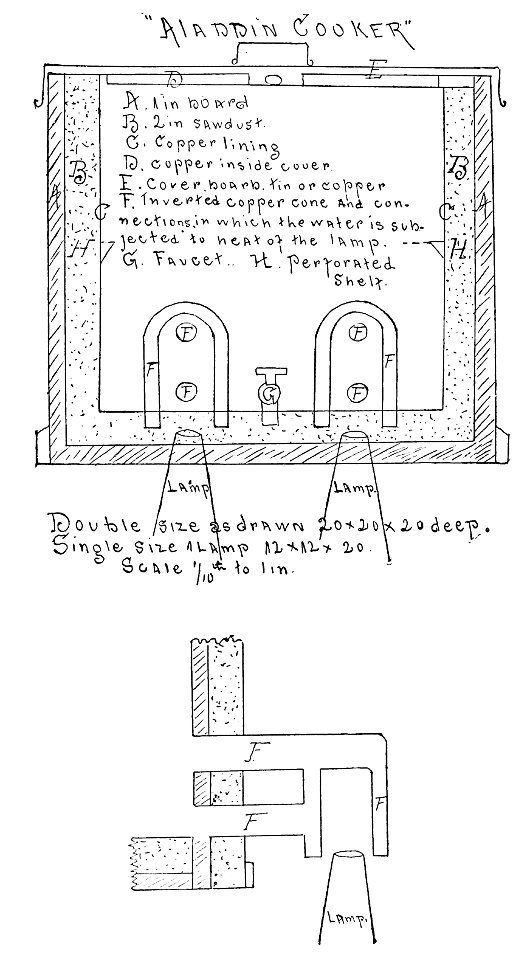 "ALADDIN COOKER"
D
E
A. 1 in board
B. 2 in sawdust.
C. Copper lining
D. copper inside cover
E. Cover, board, tin or copper
F. Inverted copper cone and con-
nections, in which the water is sub-
jected to heat of the lamp.
G. Faucet.. H. perforated
shelf.
B
B
A
A
C
C
H
H
F
F
F
F
F
F
G
Lamp
Lamp.
Double size as drawn 20x20x20 deep.
Single size 1 Lamp 12x12x20.
Scale 1/10th to 1 in.
F
F
F
Lamp.